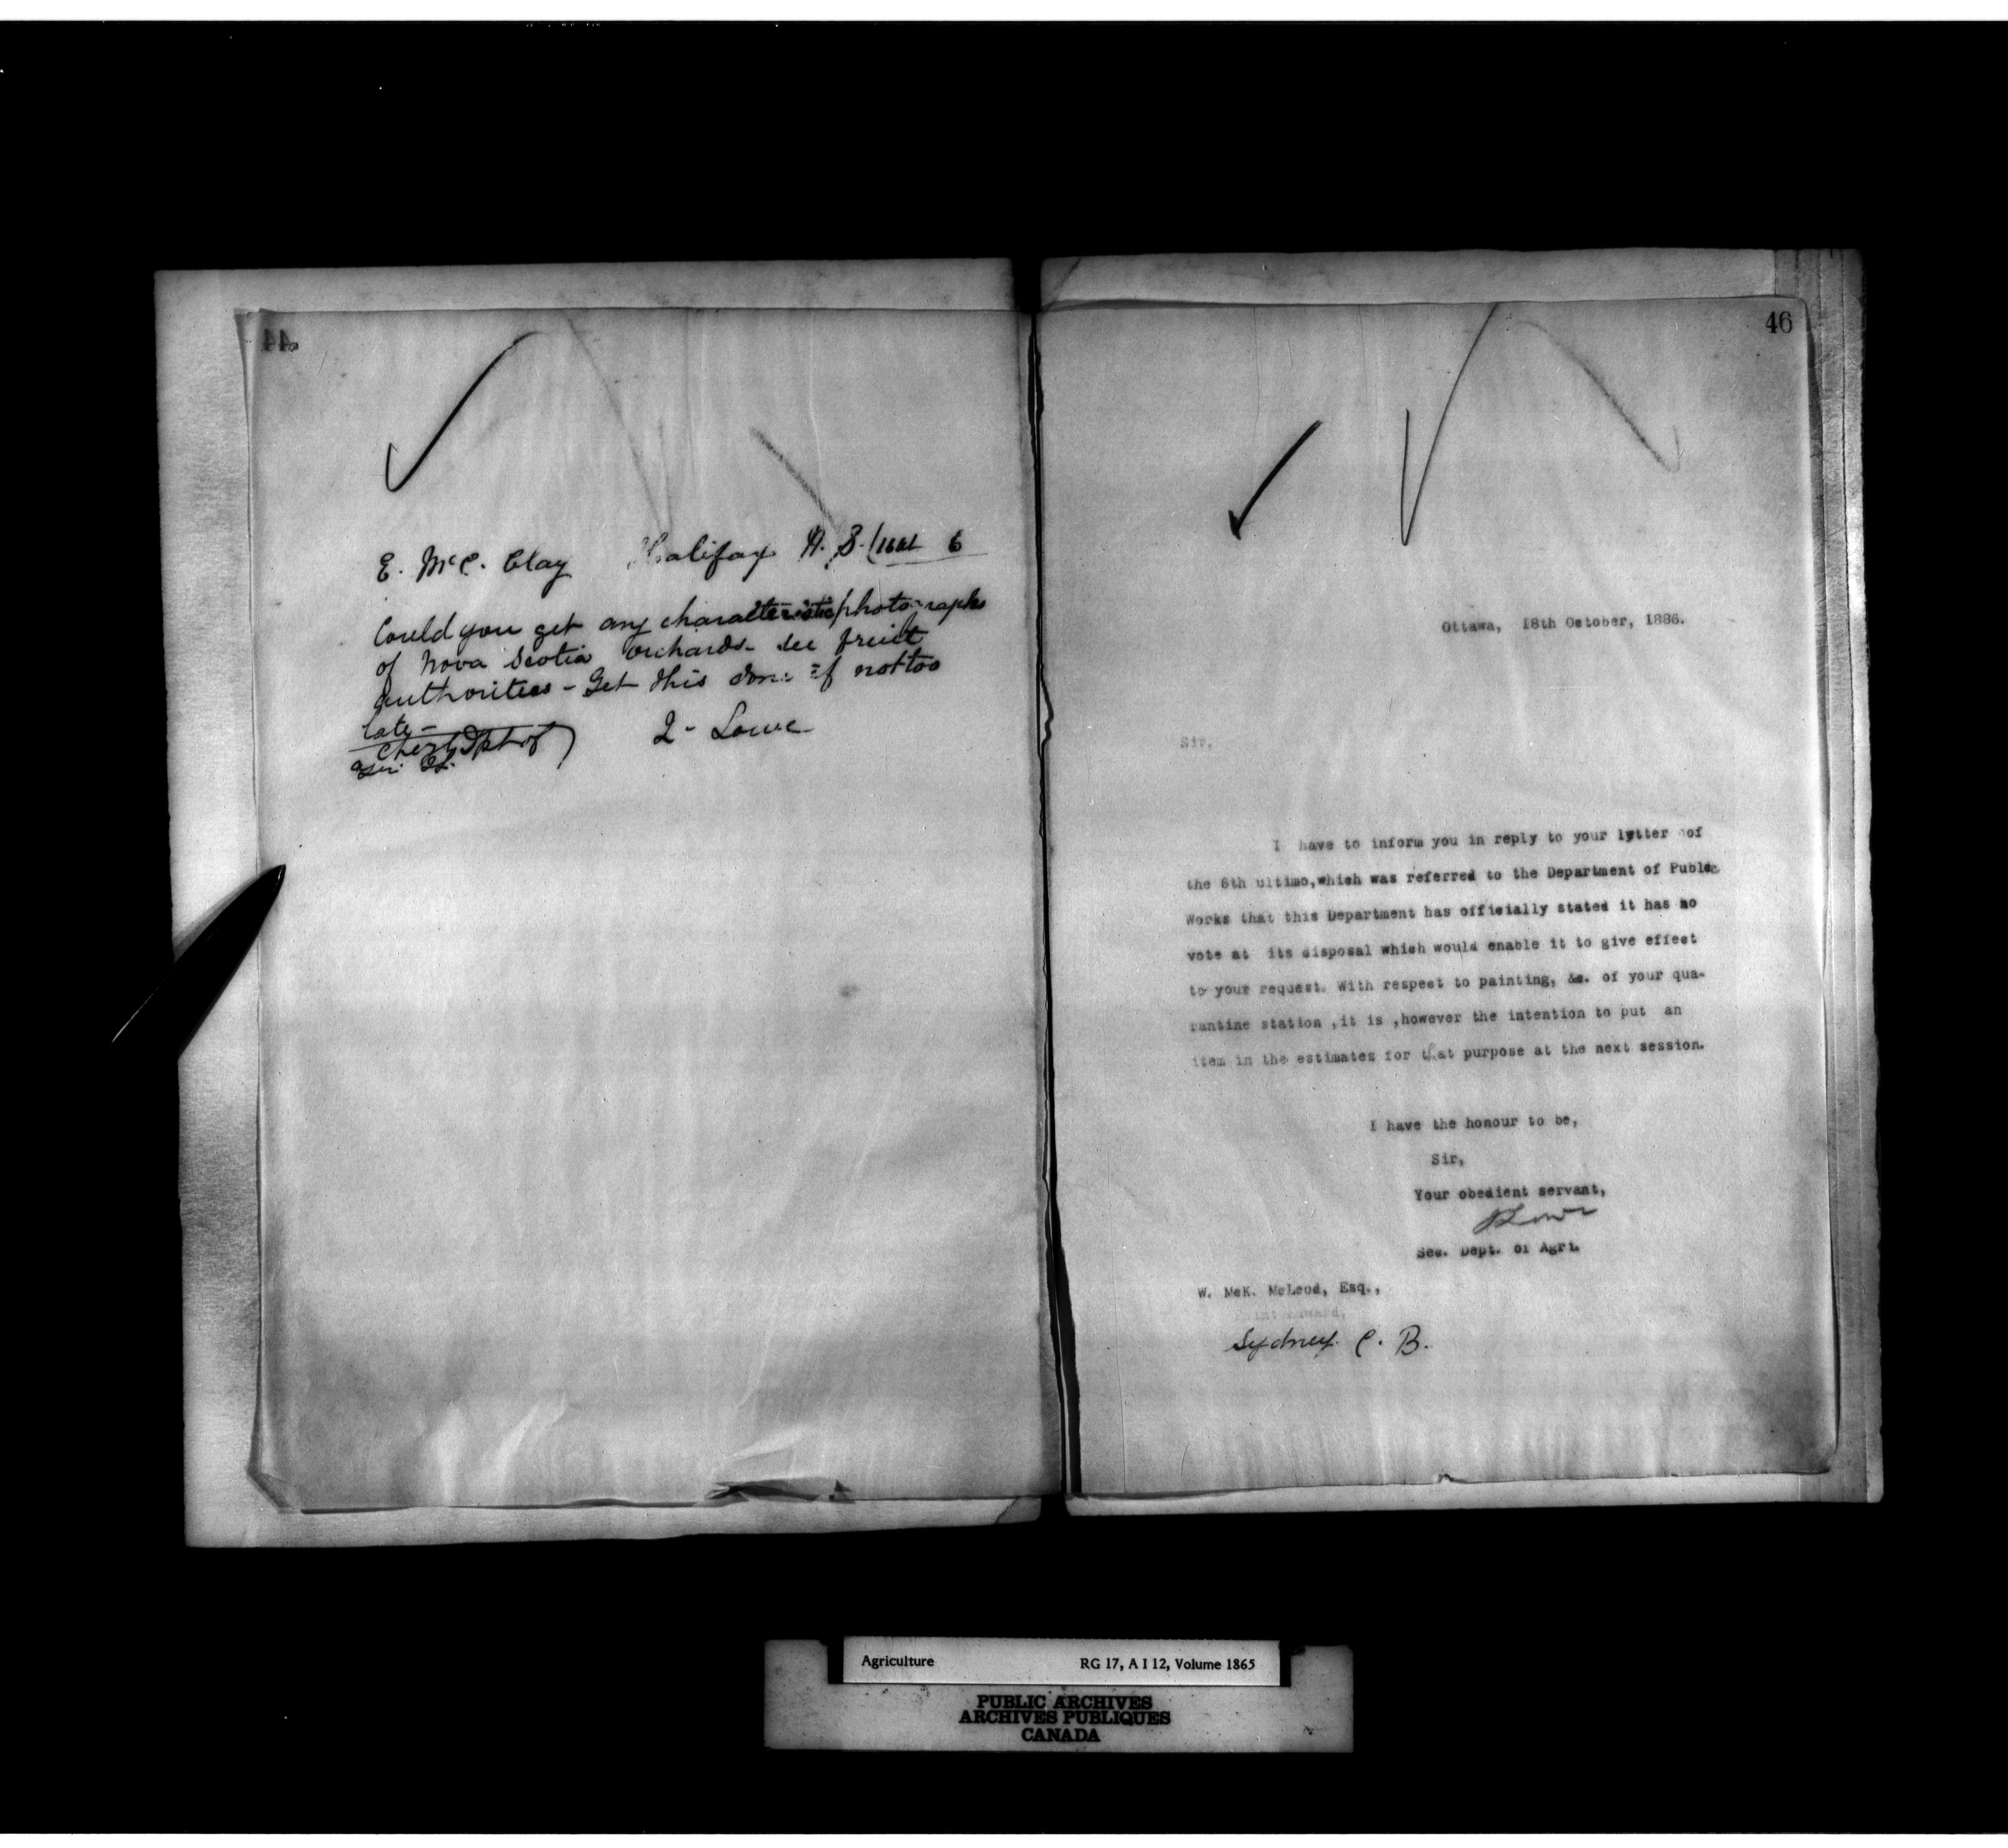 44
E. McC. Clay Halifax N. S.
Could you get any characteristic photographs
of Nova Scotia orchards - see fruit
authorities - Get this done if not too
late -
J - Lowe
46
Ottawa, 18th October, 1886.
Sir,
I have to inform you in reply to your letter of
the 6th ultimo, which was referred to the Department of Public
Works that this Department has officially stated it has no
vote at its disposal which would enable it to give effect
to your request. With respect to painting, &c. of your qua-
rantine station , it is , however the intention to put an
item in the estimates for that purpose at the next session.
I have the honour to be,
Sir,
Your obedient servant,
J Lowe
Sec. Dept. of Agri.
W. McK. McLeod, Esq.,
Sydney. C. B.
Agriculture RG 17, A I 12, Volume 1865
PUBLIC ARCHIVES
ARCHIVES PUBLIQUES
CANADA